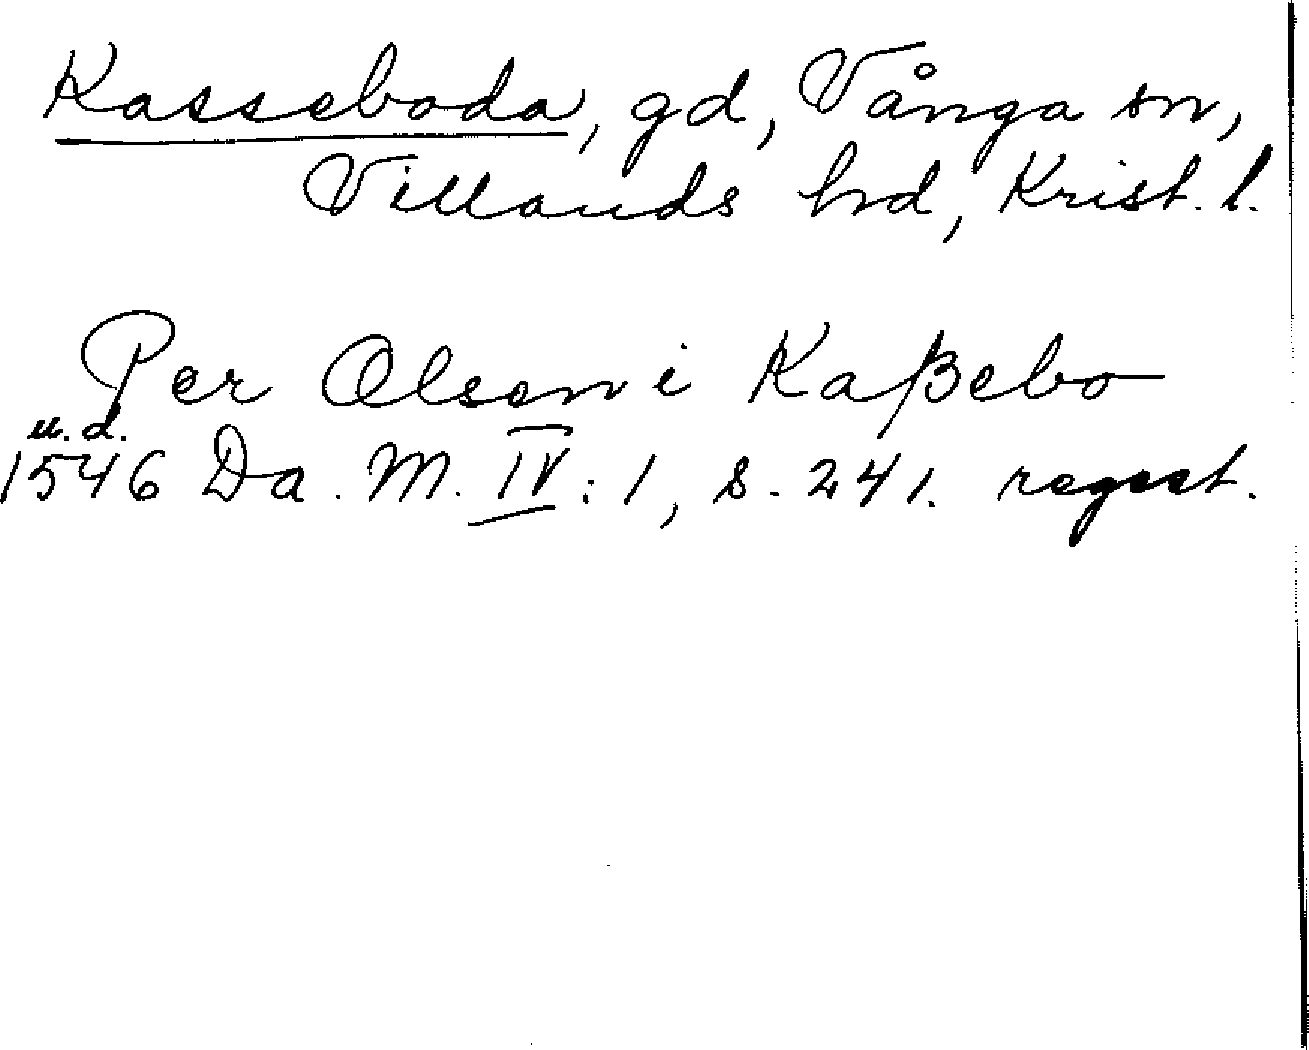 Kasseboda, gd, Vånga sn,
Villands hd, Krist. l.
Per Olsen i Kaßebo
u.d.
1546 Da. M. IV: 1, s. 241. regest.